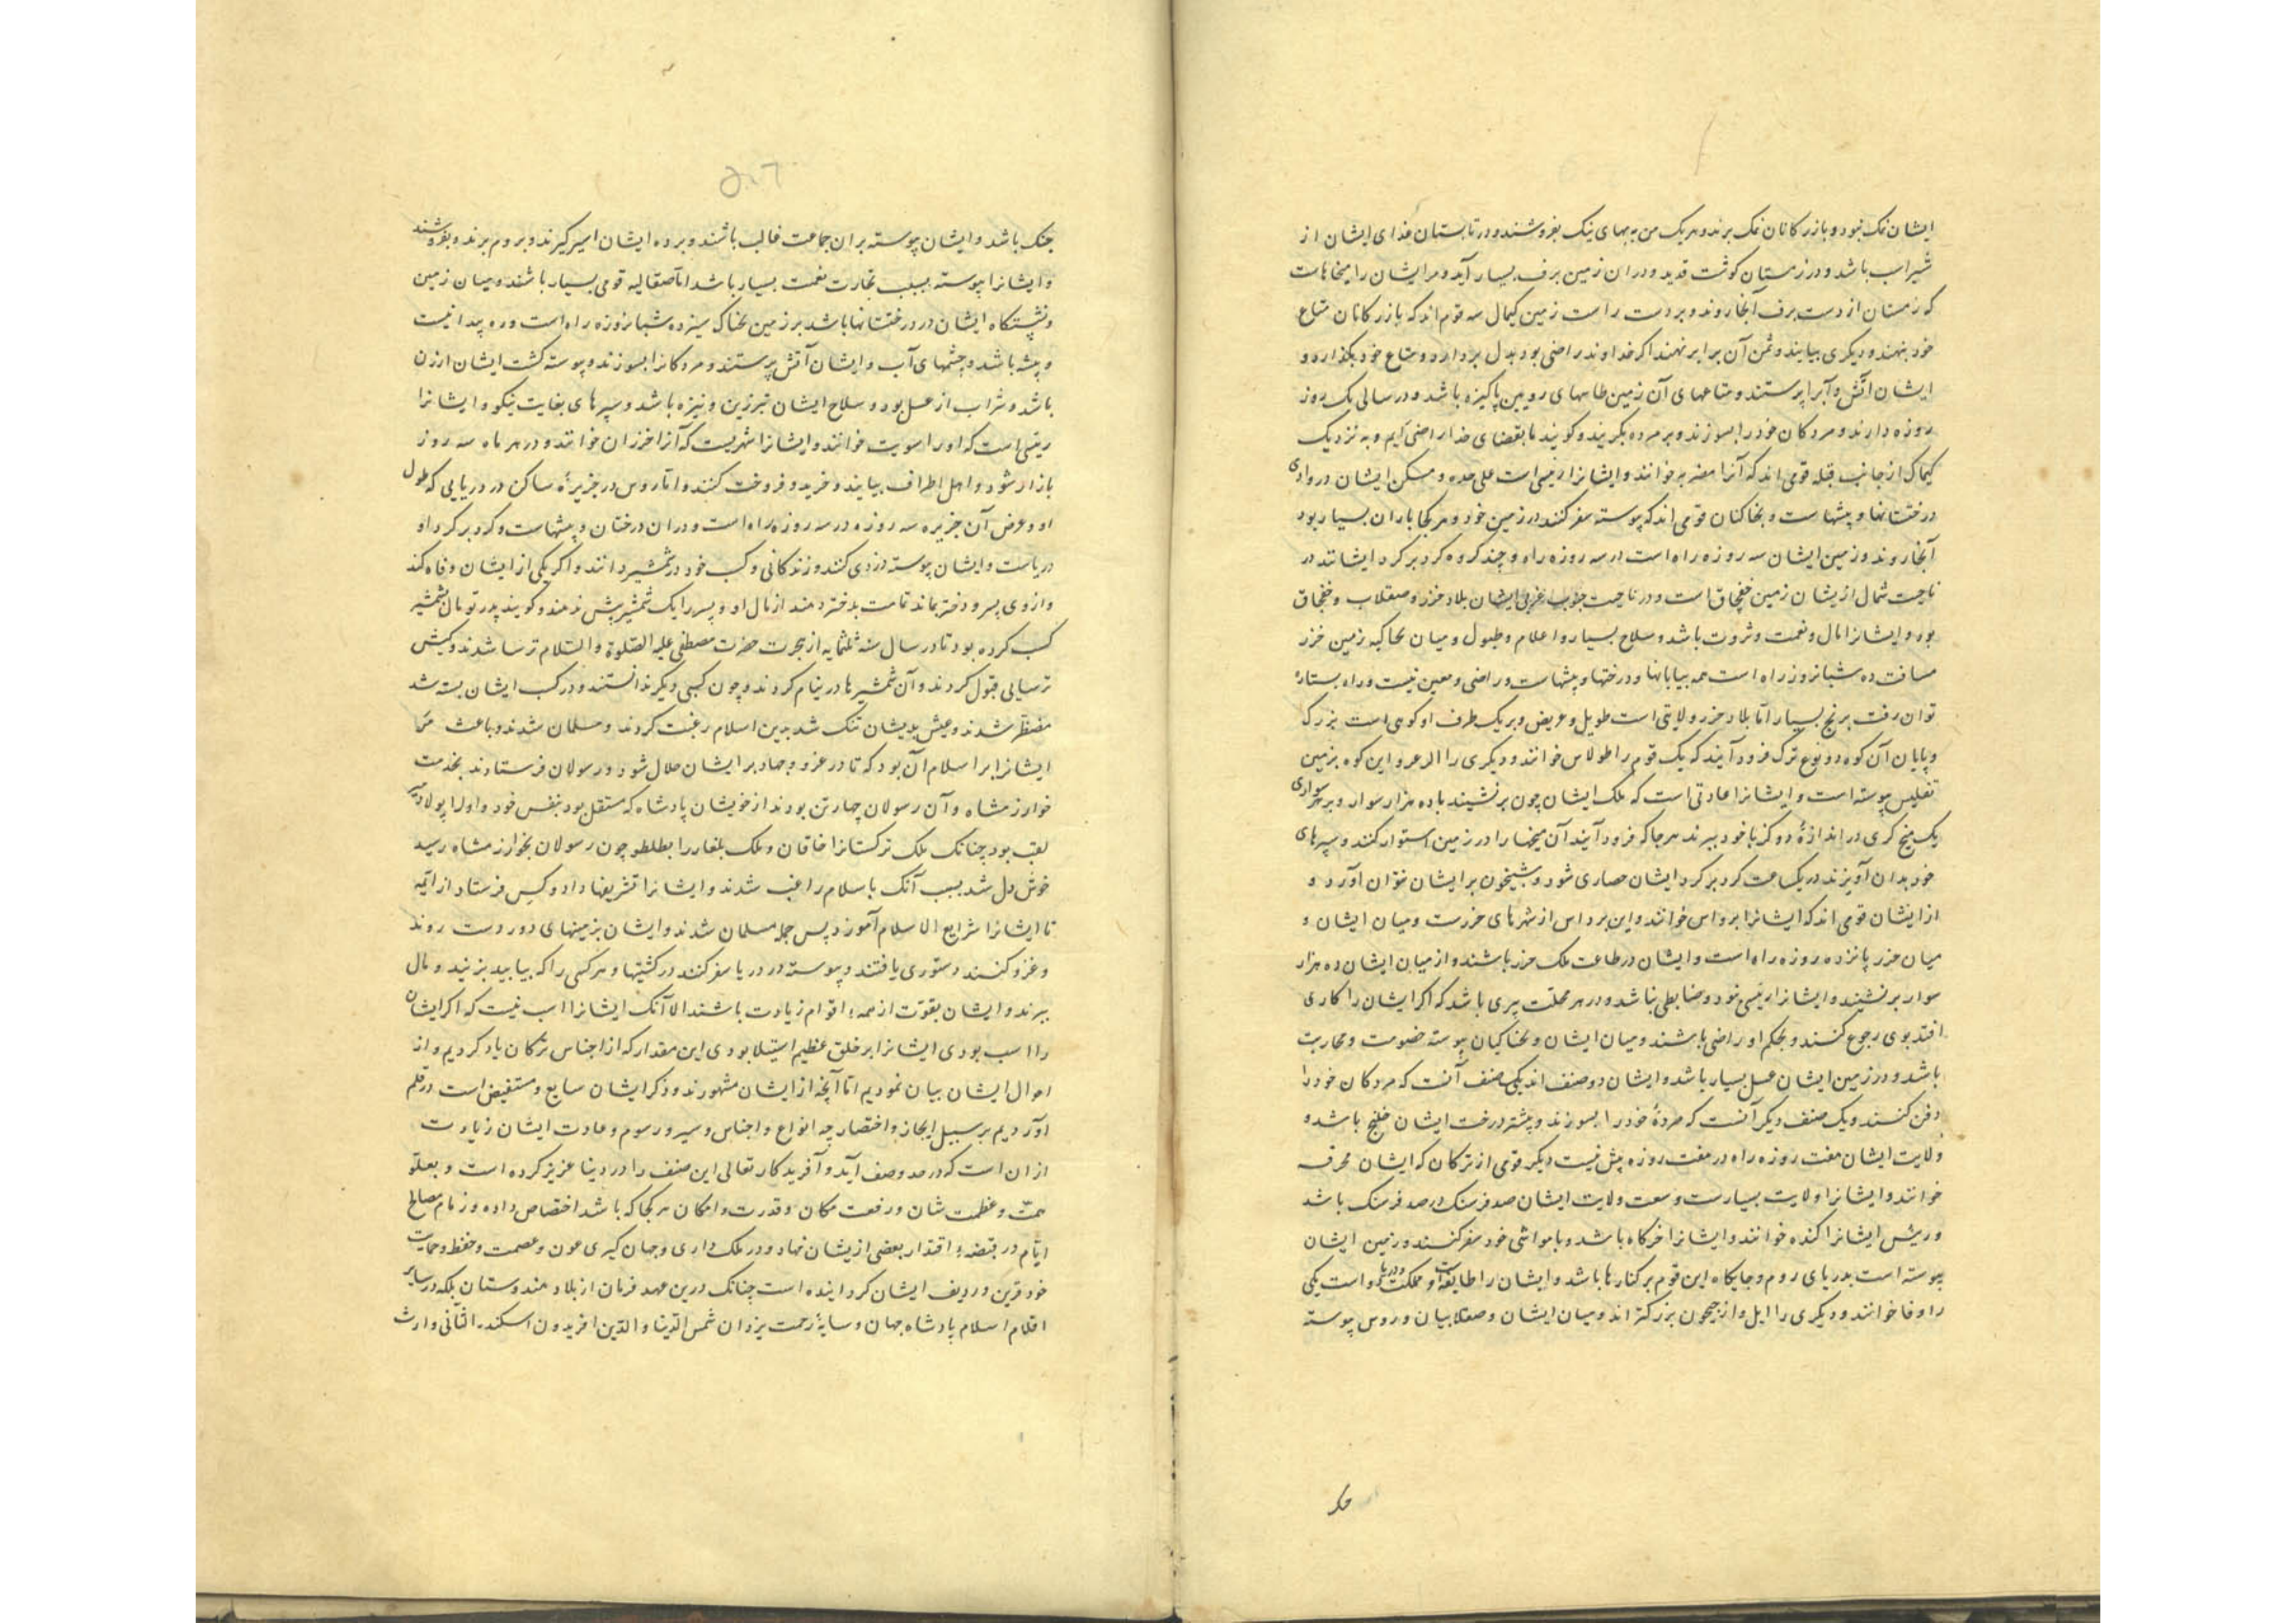 ایشان نمک نبود و بازرکانان نمک برند و هر یک من به بهای نیک بفروشند و در تابستان غذای ایشان از
شیر اسب باشد و در زمستان کوشت قدید و دران زمین برف بسیار آید و مر ایشان را میخا هاست
که زمستان از دست برف آنجا روند و بر دست راست زمین کیمال سه قوم اند که بازرکانان متاع
خود بنهند و دیکری بیایند و ثمن آن برابر نهند اکر خداوند راضی بود بدل بردارد و متاع خود بکذارد و
ایشان آتش و آبرا پرستند و متاعهای آن زمین طاسهای رویین پاکیزه باشد و در سالی یک روز
روزه دارند و مردکان خود را بسوزند و بر مرده نکریند و کویند ما بقضای خدا راضی ایم و به نزدیک
کیماک از جانب قبله قومی اند که آنرا مضربه خوانند و ایشانرا رئیسی است علی حده و مسکن ایشان در وادی
درختستانها و بیشها ست و بخاکنان قومی اند که پیوسته سفر کنند در زمین خود و هر کجا باران بسیار بود
آنجا روند و زمین ایشان سه روزه راه است در سه روزه راه و چند کروه کرد بر کرد ایشانند در
ناحیت شمال ازیشان زمین خفجاق است و در ناحیت جنوب غربی ایشان بلاد خزر و صقلاب و خفجاق
بود و ایشانرا مال و نعمت و ثروت باشد و سلاح بسیار و اعلام و طبول و میان بخاکیه زمین خزر
مسافت ده شبانروز راه است همه بیابانها و درختها و بیشهاست و راضی و معین نیست و راه بستارهٔ
توان رفت برنج بسیار اما بلاد خزر ولایتی است طویل و عریض و بر یک طرف او کوهی است بزرک
و پایان آن کوه دو نوع ترک فرود آیند که یک قوم را طولاس خوانند و دیکری را الرعر و این کوه بزمین
تفلیس پیوسته است و ایشانرا عادتی است که ملک ایشان چون بر نشیند با ده هزار سوار و بر هر سواری
یک میخ کری در اندازهٔ دو کز با خود ببرند هر جا که فرود آیند آن میخها را در زمین استوار کنند و سپرهای
خود بدان آویزند در یکساعت کرد بر کرد ایشان حصاری شود و شبیخون بر ایشان نتوان آورد و
از ایشان قومی اند که ایشانرا برداس خوانند و این برداس از شهرهای خزرست و میان ایشان و
میان خزر پانزده روزه راه است و ایشان در طاعت ملک خزر باشند و از میان ایشان ده هزار
سوار بر نشیند و ایشانرا رئیسی نبود و ضابطی نباشد و در هر محلت پیری باشد که اکر ایشان را کاری
افتد بوی رجوع کنند و بحکم او راضی باشند و میان ایشان و بخناکیان پیوسته خصومت و محاربت
باشد و در زمین ایشان عسل بسیار باشد و ایشان دو صنف اند یکی صنف آنست که مردکان خود را
دفن کنند و یک صنف دیکر آنست که مردهٔ خود را بسوزند و بیشتر درخت ایشان خلنج باشد و
ولایت ایشان هفت روزه راه در هفت روزه بیش نیست دیکر قومی از ترکان که ایشان محرقه
خوانند و ایشانرا ولایت بسیارست و سعت ولایت ایشان صد فرسنک در صد فرسنک باشد
و رئیس ایشانرا کنده خوانند و ایشانرا خرکاه باشد و با مواشی خود سفر کنند و زمین ایشان
پیوسته است بدریای روم و جایکاه این قوم بر کنارها باشد و ایشان را طایفه و مملکت و دریا است یکی
را وفا خوانند و دیکری را ایل و از جیحون بزرکتر اند و میان ایشان و صقلابیان و روس پیوسته
۵۰۶
جنک باشد و ایشان پیوسته بران جماعت غالب باشند و برده ایشان اسیر کیرند و بروم برند و بفروشند
و ایشانرا پیوسته بسبب تجارت نعمت بسیار باشد اما صقالیه قومی بسیار باشند و میان زمین
و نشستکاه ایشان در درختستانها باشد بر زمین بخناک سیزده شبانروزه راه است و ره پیدا نیست
و بیشه باشد و چشمهای آب و ایشان آتش پرستند و مردکانرا بسوزند و پیوسته کشت ایشان ارزن
باشد و شراب از عسل بود و سلاح ایشان تبرزین و نیزه باشد و سپرهای بغایت نیکو و ایشانرا
رئیسی است که او را سویت خوانند و ایشانرا شهریست که آنرا خزران خوانند و در هر ماه سه روز
بازار شود و اهل اطراف بیایند و خرید و فروخت کنند و اما روس در جزیرهٔ ساکن در دریایی که طول
او و عرض آن جزیره سه روزه در سه روزه راه است و دران درختان و بیشهاست و کرد بر کرد او
دریاست و ایشان پیوسته دزدی کنند و زندکانی و کسب خود در شمشیر دانند و اکر یکی از ایشان وفاه کند
و از وی پسر و دختر بماند تمامت بدختر دهند از مال او و پسر را یک شمشیر پیش نهند و کویند پدر تو مال بشمشیر
کسب کرده بود تا در سال سنه ثلثمایه از هجرت حضرت مصطفی علیه الصلوة و السلام ترسا شدند و کیش
ترسایی قبول کردند و آن شمشیرها در نیام کردند و چون کسبی دیکر ندانستند و در کسب ایشان بسته شد
مضطر شدند و عیش بدیشان تنک شد بدین اسلام رغبت کردند و مسلمان شدند و باعث مر
ایشانرا بر اسلام آن بود که تا در غزو و جهاد بر ایشان حلال شود و رسولان فرستادند بخدمت
خوارزمشاه و آن رسولان چهار تن بودند از خویشان پادشاه که مستقل بود بنفس خود و او را پولادمیر
لقب بود چنانک ملک ترکستانرا خاقان و ملک بلغار را بطلطو چون رسولان بخوارزمشاه رسید
خوش دل شد بسبب آنک باسلام راغب شدند و ایشانرا تشریفها داد و کس فرستاد از ائمه
تا ایشانرا شرایع الاسلام آموزد پس جمله مسلمان شدند و ایشان بزمینهای دور دست روند
و غزو کنند دستوری یافتند و پیوسته در دریا سفر کنند در کشتیها و هر کسی را که بیابید بزنید و مال
ببرند و ایشان بقوت از همهٔ اقوام زیادت باشند الا آنک ایشانرا اسب نیست که اکر ایشان
را اسب بودی ایشانرا بر خلق عظیم استیلا بودی این مقدار که از اجناس ترکان یاد کردیم و از
احوال ایشان بیان نمودیم اما آنچه از ایشان مشهورند و ذکر ایشان سایع و مستفیض است در قلم
آوردیم بر سبیل ایجاز و اختصار چه انواع و اجناس و سیر و رسوم و عادت ایشان زیادت
ازان است که در صد وصف آید و آفریدکار تعالی این صنف را در دنیا عزیز کرده است و بعلو
همت و عظمت شان و رفعت مکان و قدرت و امکان هر کجا که باشد اختصاص داده و زمام مصالح
ایام در قبضهٔ اقتدار بعضی ازیشان نهاد و در ملک داری و جهان کیری عون و عصمت و حفظ و حمایت
خود قرین و ردیف ایشان کردانیده است چنانک درین عهد فرمان از بلاد هندوستان بلکه در سایر
اقلام اسلام پادشاه جهان و سایهٔ رحمت یزدان شمس الدنیا و الدین افریدون اسکندر الثانی وارث